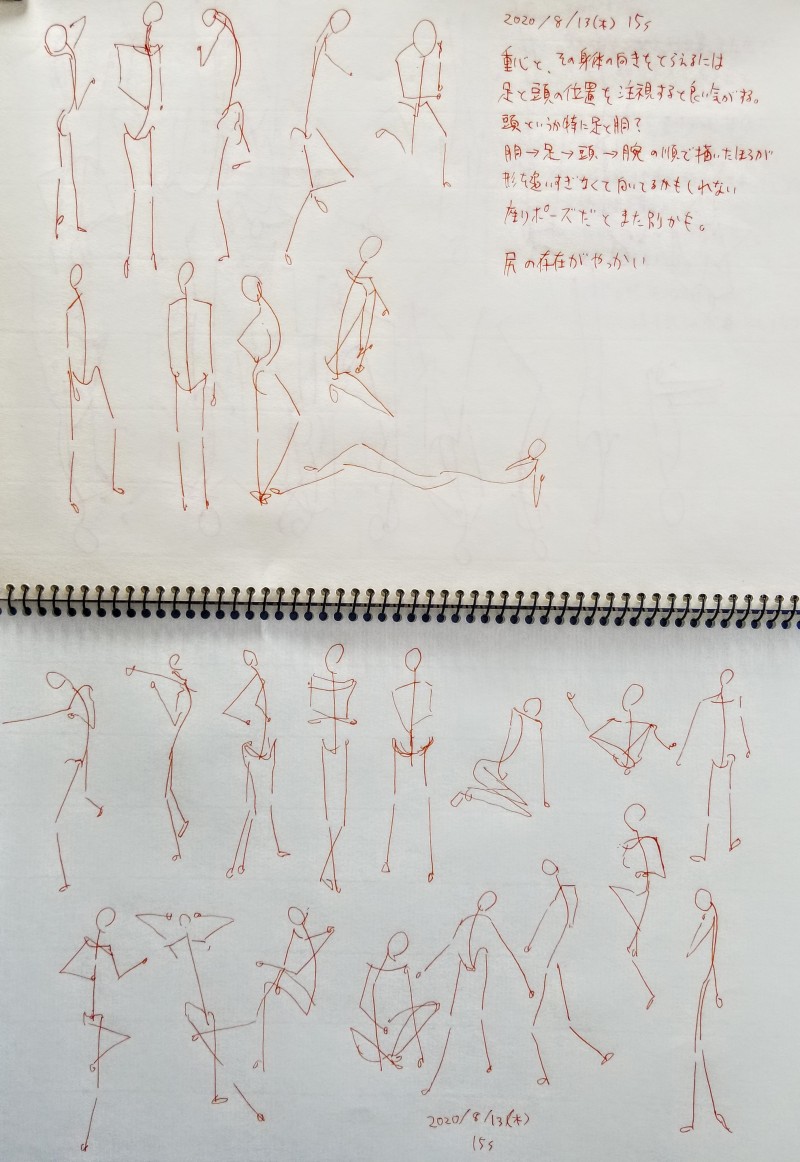 2020/8/13(木) 15s
重心と、その身体の向きをとらえるには
足と頭の位置を注視すると良い気がする。
頭というか特に足と胴?
胴→足→頭→腕の順で描いたほうが
形を追いすぎなくて向いてるかもしれない
座りポーズだとまた別かも。
尻の存在がやっかい
2020/8/13(木)
15s